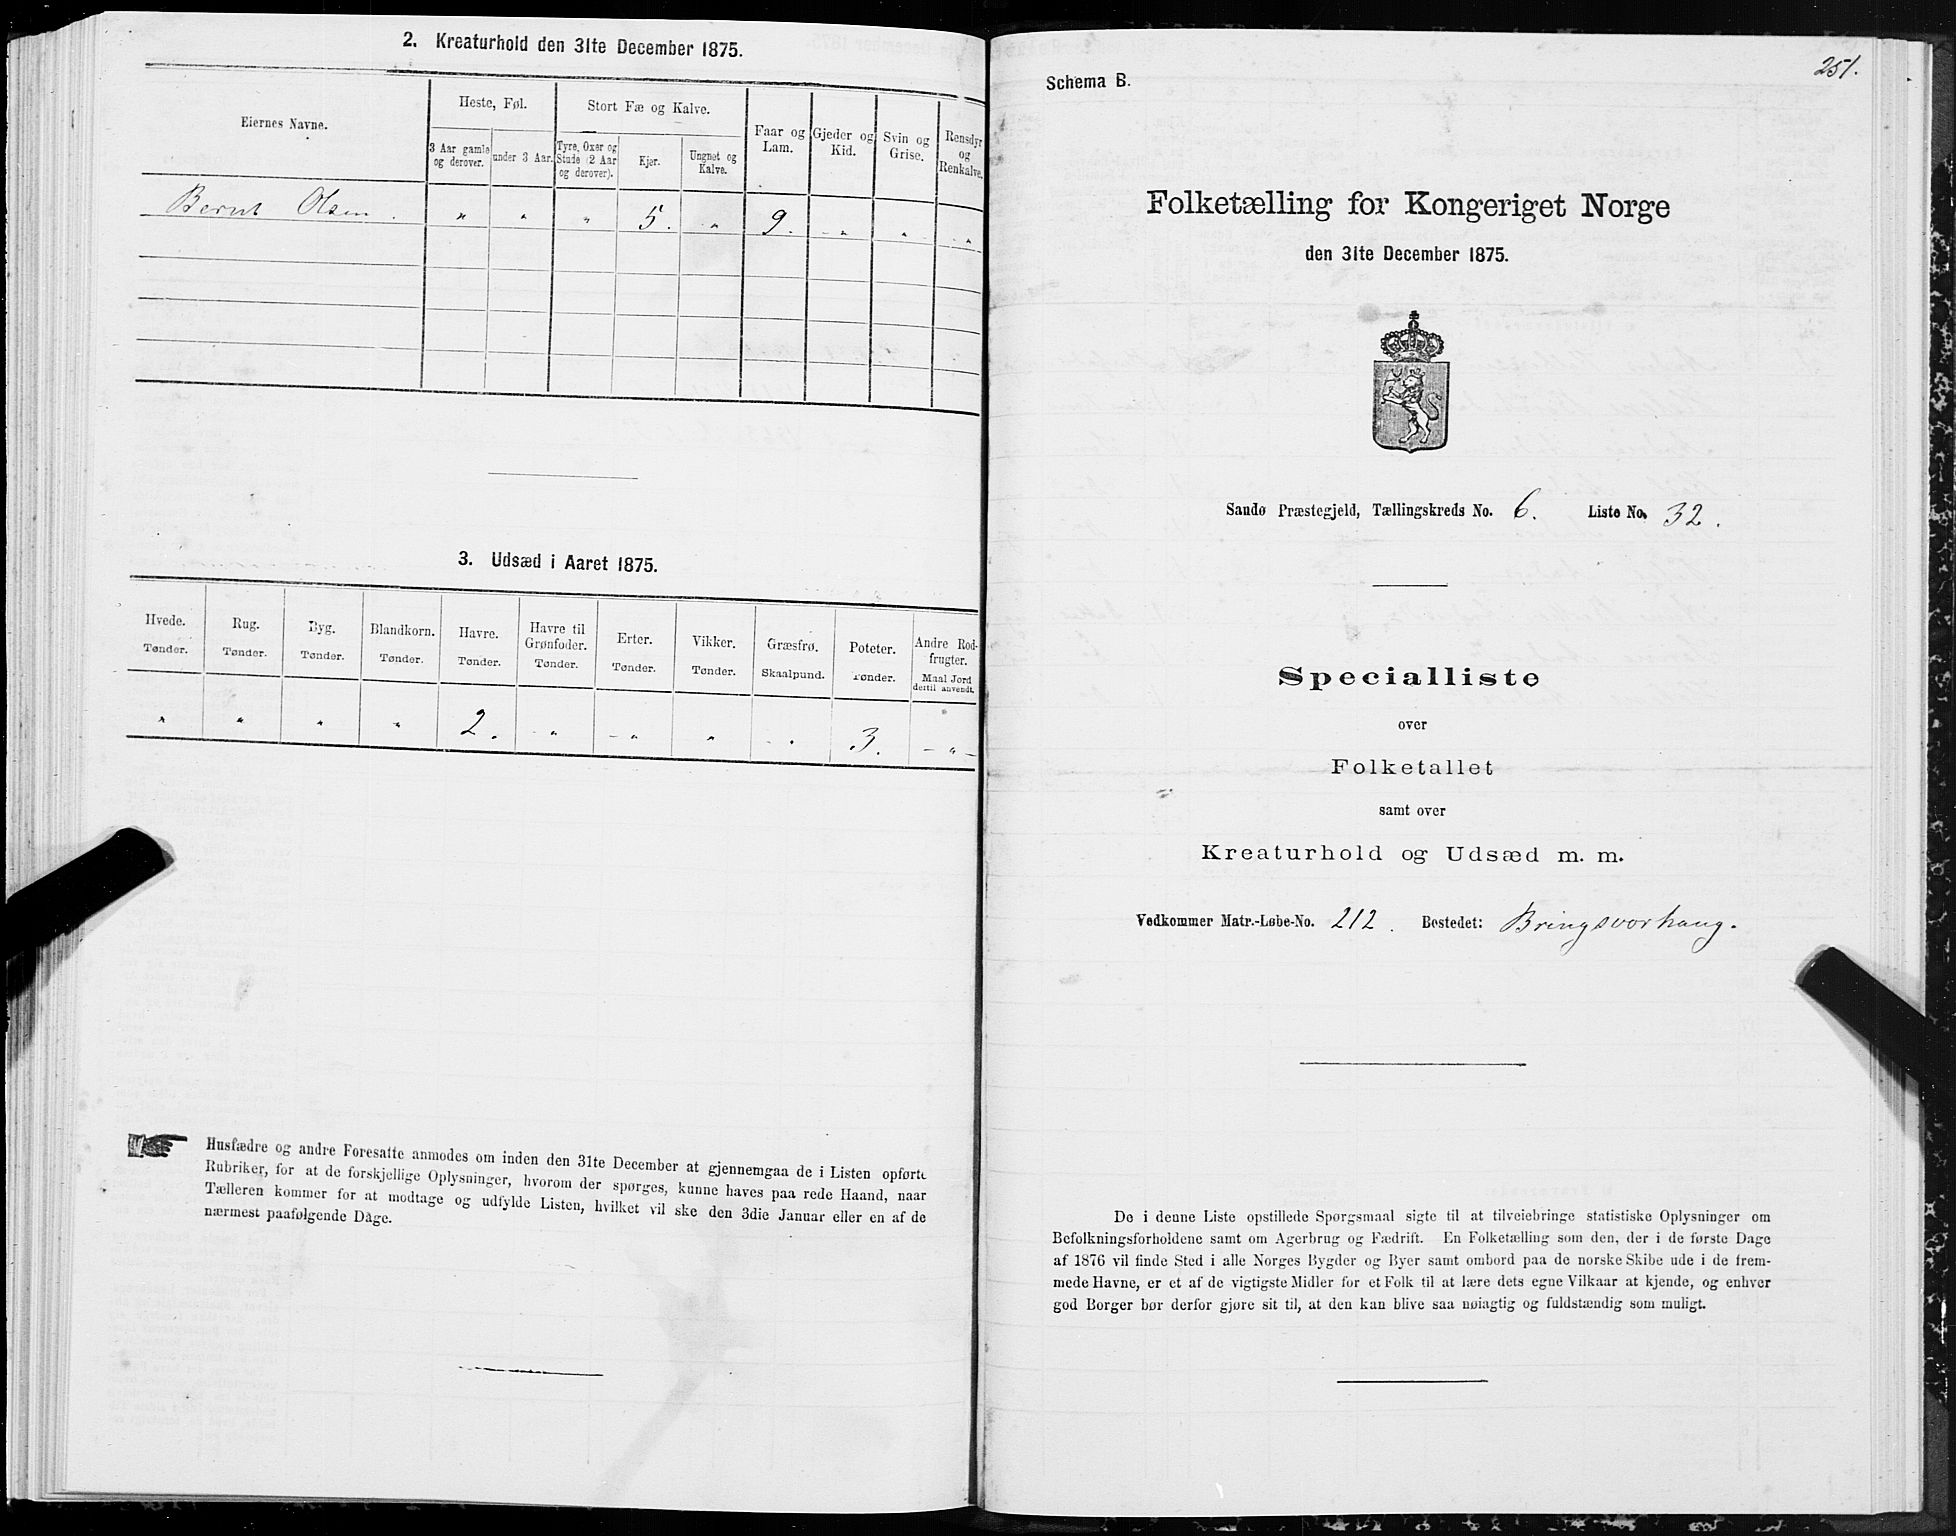 2. Kreaturhold den 31te December 1875.
Eiernes Navne.
Heste, Føl.
Stort Fæ og Kalve.
Faar og Lam.
Gjeder og Kid.
Svin og Grise.
Rensdyr og Renkalve.
3 Aar gamle og derover.
under 3 Aar.
Tyre, Oxer og Stude (2 Aar og derover).
Kjør.
Ungnet og Kalve.
Bernt Olsen. " " " 5. " 9. " " "
3. Udsæd i Aaret 1875.
Hvede. Rug. Byg. Blandkorn. Havre. Havre til Grønfoder. Erter. Vikker. Græsfrø. Poteter. Andre Rodfrugter.
Tønder. Tønder. Tønder. Tønder. Tønder. Tønder. Tønder. Tønder. Skaalpund. Tønder. Maal Jord dertil anvendt.
" " " " 2. " " " " 3. "
Husfædre og andre Foresatte anmodes om inden den 31te December at gjennemgaa de i Listen opførte
Rubriker, for at de forskjellige Oplysninger, hvorom der spørges, kunne haves paa rede Haand, naar
Tælleren kommer for at modtage og udfylde Listen, hvilket vil ske den 3die Januar eller en af de
nærmest paafølgende Dage.
251.
Schema B.
Folketælling for Kongeriget Norge
den 31te December 1875.
Sandø Præstegjeld, Tællingskreds No. 6. Liste No. 32.
Specialliste
over
Folketallet
samt over
Kreaturhold og Udsæd m. m.
Vedkommer Matr.-Løbe-No. 212. Bostedet: Bringsvorhaug.
De i denne Liste opstillede Spørgsmaal sigte til at tilveiebringe statistiske Oplysninger om
Befolkningsforholdene samt om Agerbrug og Fædrift. En Folketælling som den, der i de første Dage
af 1876 vil finde Sted i alle Norges Bygder og Byer samt ombord paa de norske Skibe ude i de frem-
mede Havne, er et af de vigtigste Midler for et Folk til at lære dets egne Vilkaar at kjende, og enhver
god Borger bør derfor gjøre sit til, at den kan blive saa nøiagtig og fuldstændig som muligt.